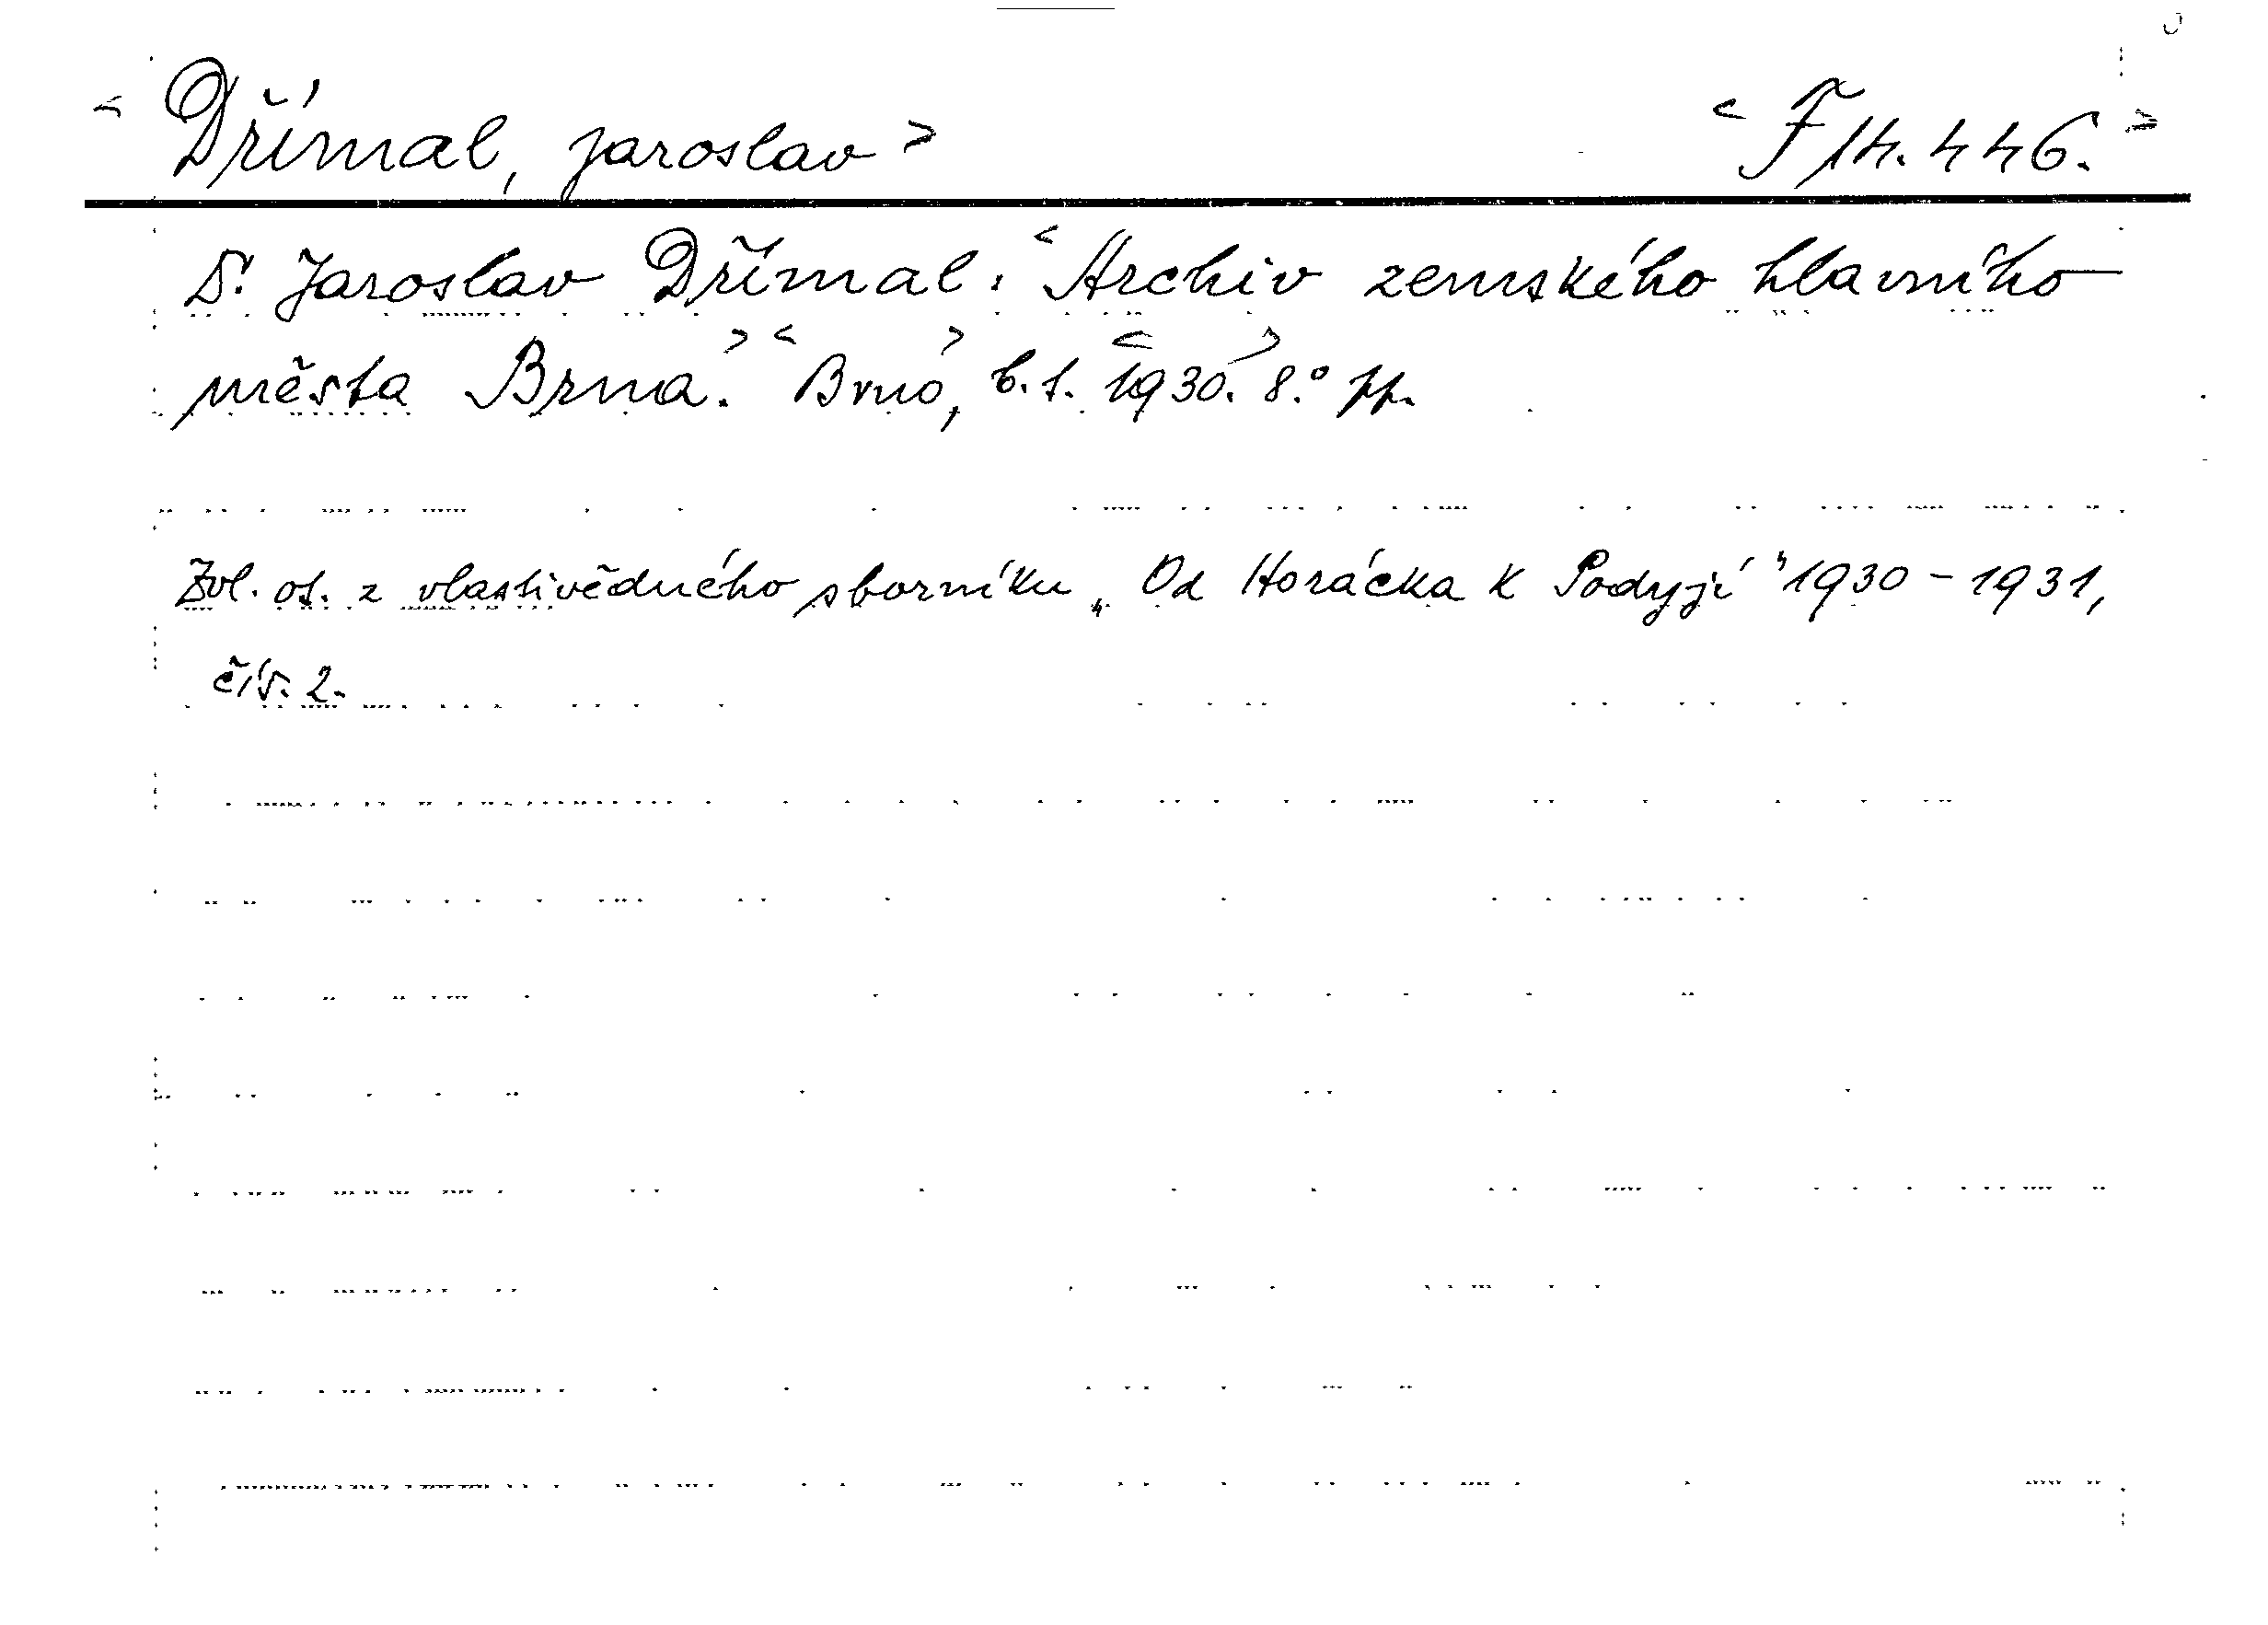 < Dřímal, Jaroslav > < F 14.446. >
Dr Jaroslav Dřímal: < Archiv zemského hlavního
města Brna. > < Brno, > b.t. < 1930. > 8.° pp.
Zvl. ot. z vlastivědného sborníku „Od Horácka k Podyjí" 1930-1931,
čís. 2.